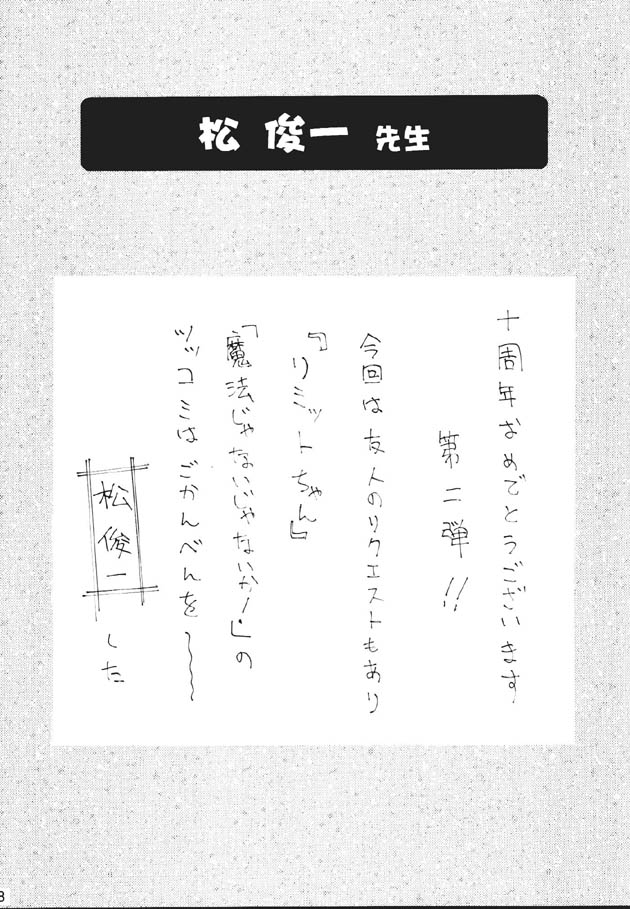 松 俊一 先生
十周年おめでとうございます
第二弾!!
今回は友人のリクエストもあり
『リミットちゃん』
「魔法じゃないじゃないか!」の
ツッコミはごかんべんを〜〜〜
松俊一でした
8